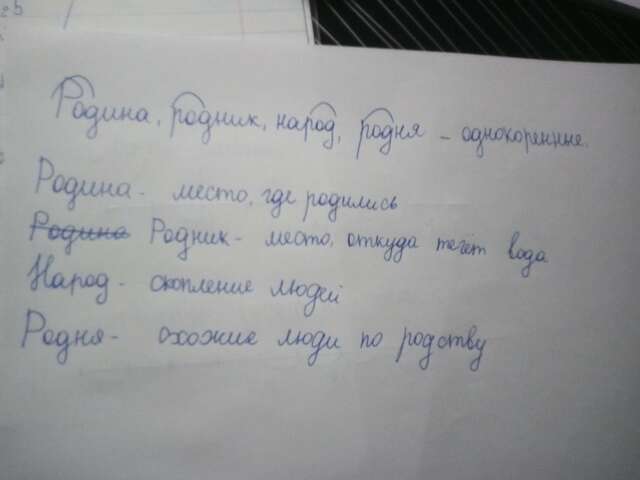 Родина, родник, народ, родня - однокоренные.
Родина - место, где родились
Родина Родник - место, откуда течёт вода
Народ - скопление людей
Родня - схожие люди по родству